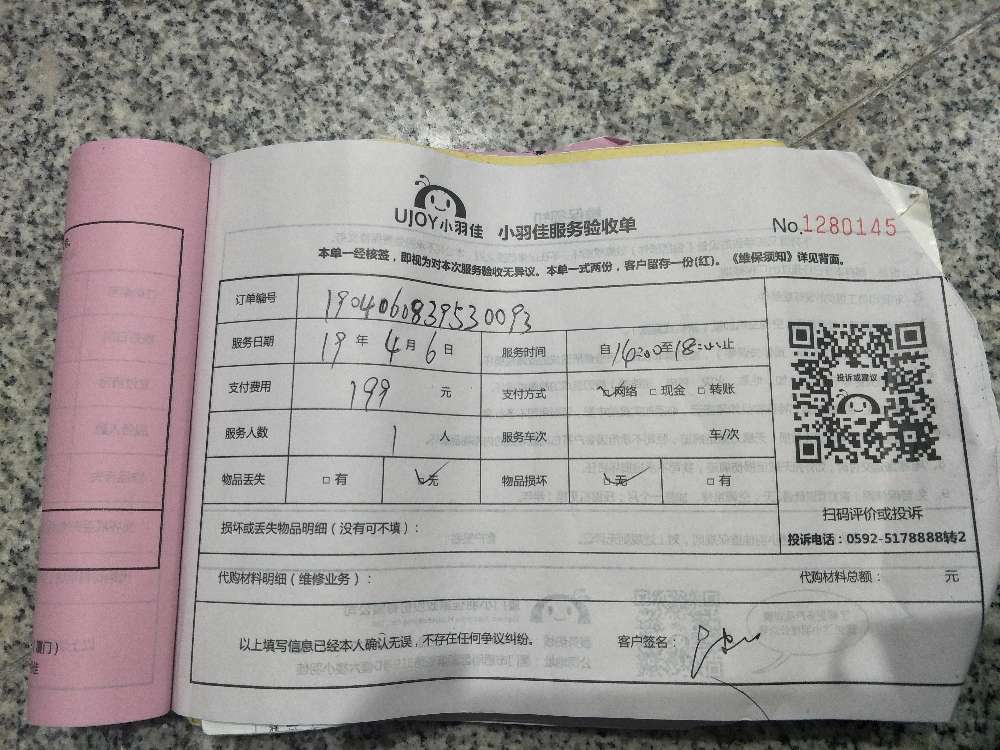 UJOY小羽佳 小羽佳服务验收单 No.1280145
本单一经核签，即视为对本次服务验收无异议。本单一式两份，客户留存一份(红)。《维保须知》详见背面。
订单编号 1904060839530093
服务日期 19年4月6日 服务时间 自14:00至18:00止
支付费用 199 元 支付方式 □网络 □现金 □转账
服务人数 1 人 服务车次 车/次
物品丢失 □有 □无 物品损坏 □无 □有
投诉或建议
扫码评价或投诉
投诉电话：0592-5178888转2
损坏或丢失物品明细（没有可不填）：
代购材料明细（维修业务）： 代购材料总额： 元
以上填写信息已经本人确认无误，不存在任何争议纠纷。 客户签名：